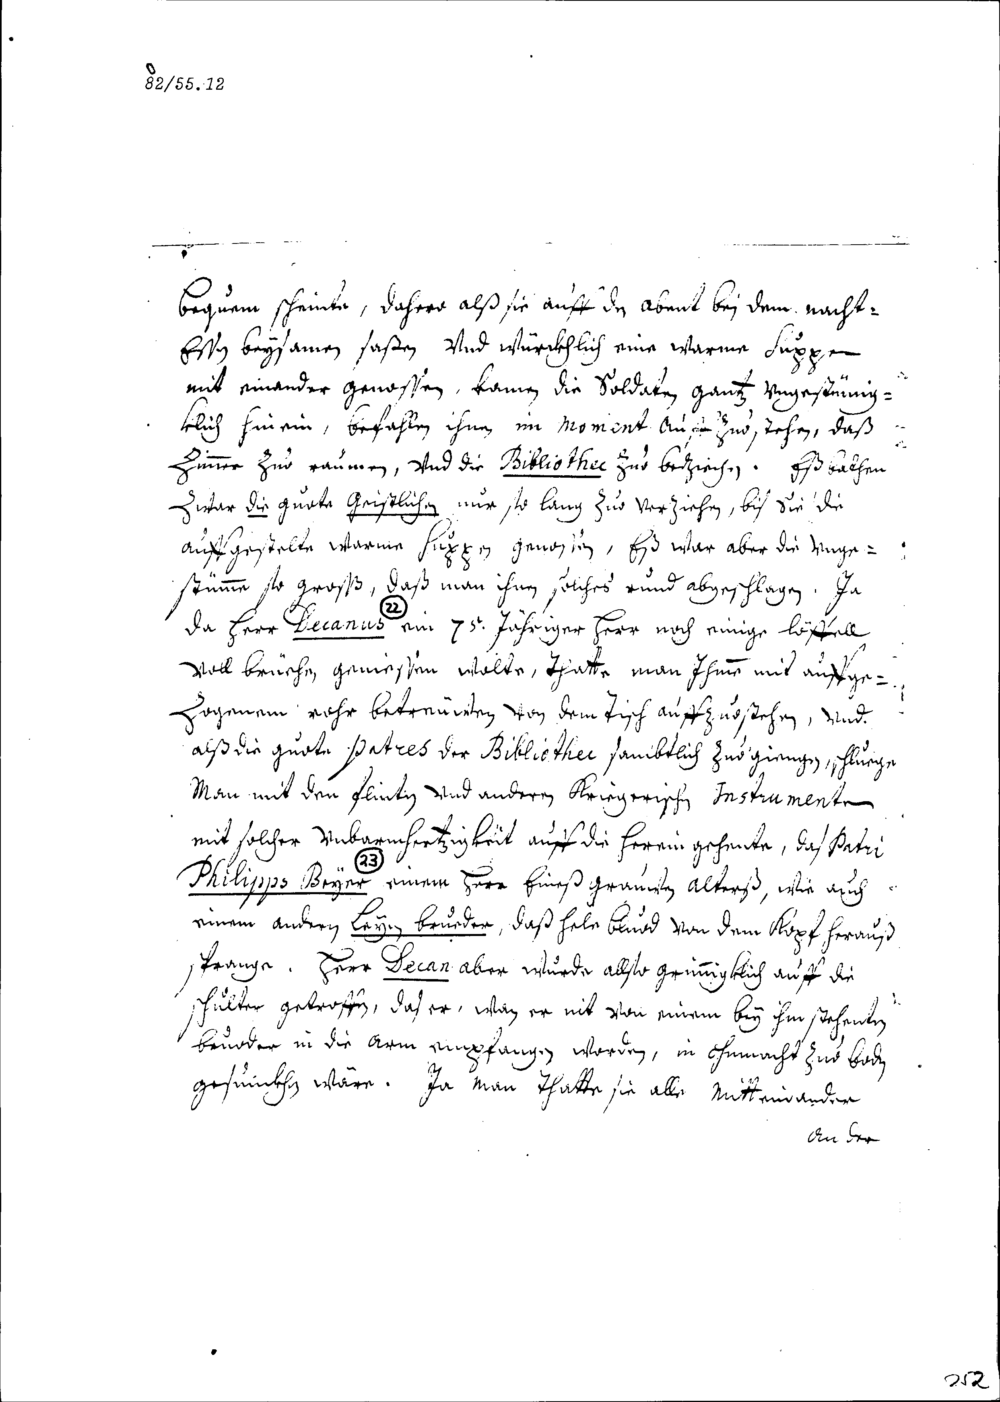 82/55.12
bequem scheinte, dahero alß sie auff den abent bej dem nacht=
Essen beysamen saßen Vnd würckhlich eine warme Suppen
mit einander genossen, kamen die Soldaten gantz Vngestümig=
klich hinein, befahlen ihnen im Moment auff Zuo stehen, daß
Zimmer Zuo raumen, Vnd die Bibliothec Zuo beziechen. Eß bathen
Zwar die guote Geistlichen nur so lang Zuo verziehen, biß Sie die
auffgestelte warme Suppen genossen, Eß war aber die Vnge=
stümme so groß, daß man ihnen solches rund abgeschlagen. Ja
22
da Herr Decanus ein 75. Jähriger Herr noch einige löffell
voll brüehen geniessen wolte, thatte man Ihme mit auffge=
Zogenem rohr betreüwen von dem Tisch auffzuostehen, Vnd
alß die guote patres der Bibliothec sambtlich Zuo giengen, schluege
Man mit den flinten Vnd anderen Kriegerischen Instrumenten
mit solcher Vnbarmhertzigkeit auff die herein gehente, das Patri
23
Philipps Beyer einem Herr Eineß grauwen alterß, wie auch
einem andern Leyen brueder, daß hele bluod von dem Kopf herauß
sprange. Herr Decan aber wurde allso grimmigklich auff die
schulter getroffen, das er, wan er nit von einem bey ihm stehenten
bruoder in die arm empfangen worden, in ohnmacht Zuo boden
gesuinckhen wäre. Ja Man thatte sie alle Mitteinander
an der
252